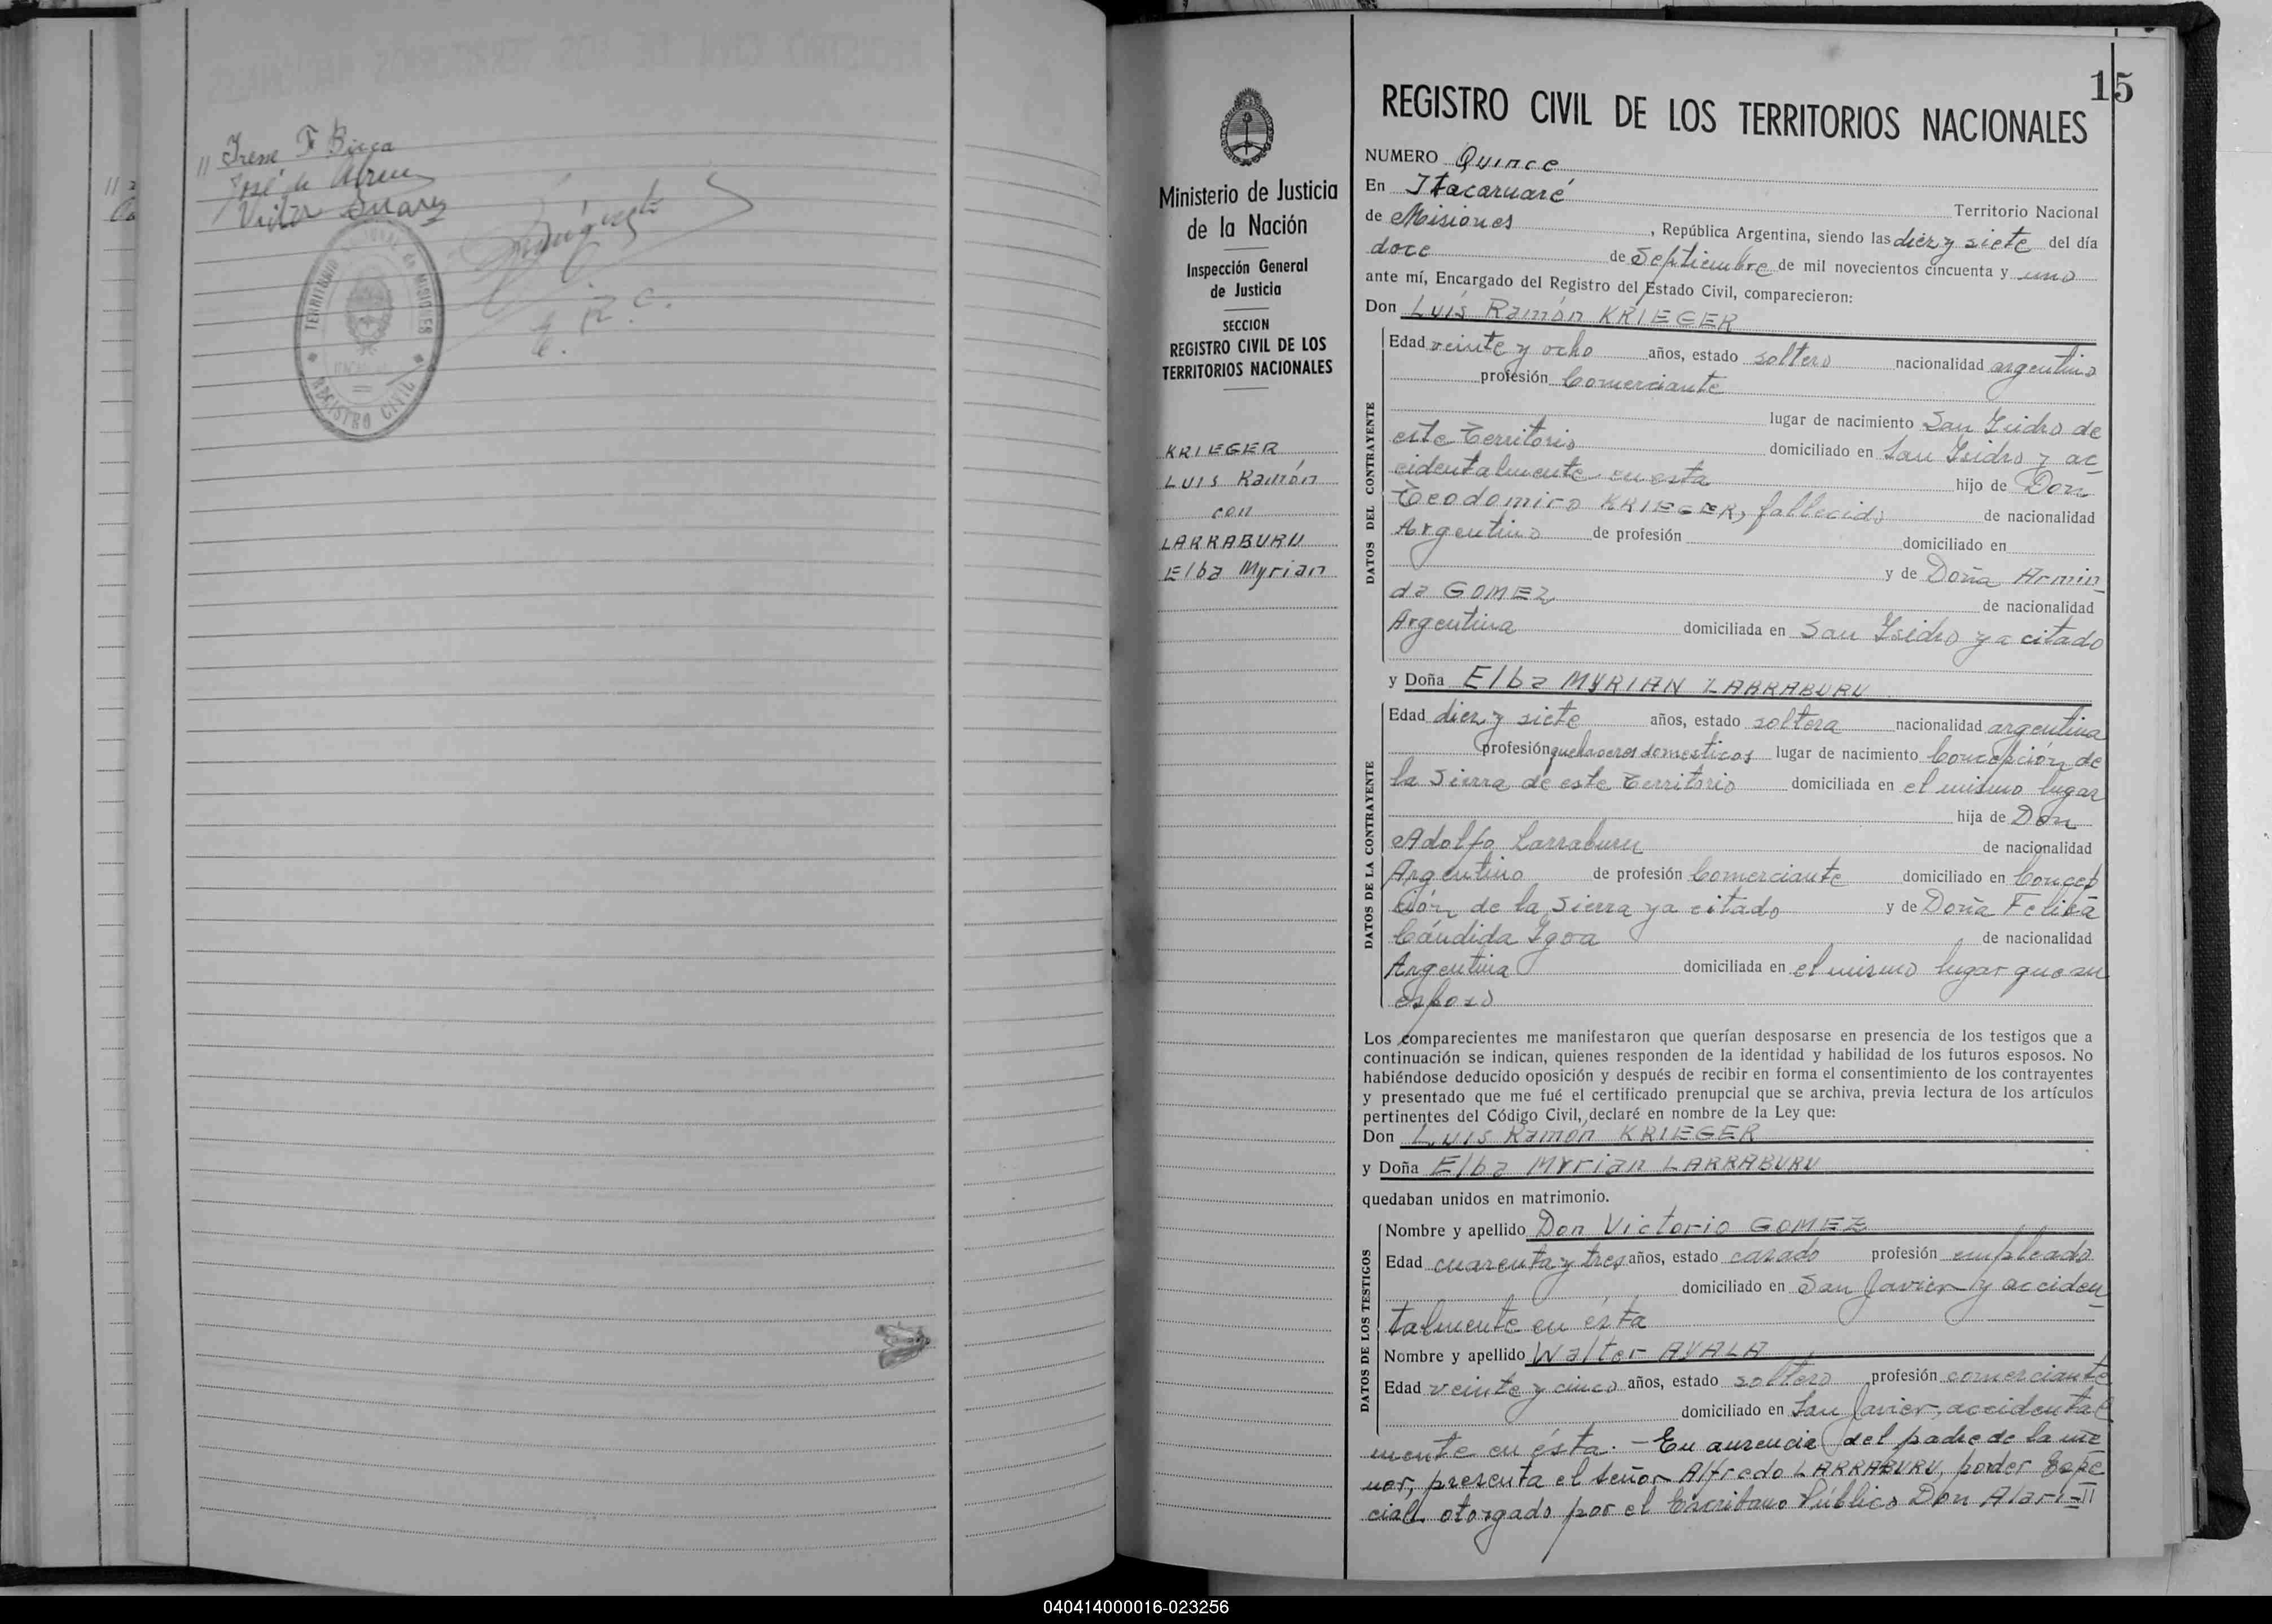 " Irene F Bicca
José de Abreu
Victor Suarez
E. R. C.
TERRITORIO NACIONAL DE MISIONES
REGISTRO CIVIL
Ministerio de Justicia
de la Nación
Inspección General
de Justicia
SECCION
REGISTRO CIVIL DE LOS
TERRITORIOS NACIONALES
KRIEGER
LUIS Ramón
con
LARRABURU
Elba Myrian
15
REGISTRO CIVIL DE LOS TERRITORIOS NACIONALES
NUMERO Quince
En Itacaruaré Territorio Nacional
de Misiones, República Argentina, siendo las diez y siete del día
doce de Septiembre de mil novecientos cincuenta y uno
ante mí, Encargado del Registro del Estado Civil, comparecieron:
Don Luis Ramón KRIEGER
DATOS DEL CONTRAYENTE
Edad veinte y ocho años, estado soltero nacionalidad argentino
profesión Comerciante
lugar de nacimiento San Isidro de
este Territorio domiciliado en San Isidro y ac-
cidentalmente en esta hijo de Don
Teodomiro KRIEGER, fallecido de nacionalidad
Argentino de profesión domiciliado en
y de Doña Armin-
da GOMEZ de nacionalidad
Argentina domiciliada en San Isidro ya citado
y Doña Elba MYRIAN LARRABURU
DATOS DE LA CONTRAYENTE
Edad diez y siete años, estado soltera nacionalidad argentina
profesión quehaceres domesticos lugar de nacimiento Concepción de
la Sierra de este Territorio domiciliada en el mismo lugar
hija de Don
Adolfo Larraburu de nacionalidad
Argentino de profesión Comerciante domiciliado en Concep
ción de la Sierra ya citado y de Doña Felisa
Cándida Igoa de nacionalidad
Argentina domiciliada en el mismo lugar que su
esposo
Los comparecientes me manifestaron que querían desposarse en presencia de los testigos que a
continuación se indican, quienes responden de la identidad y habilidad de los futuros esposos. No
habiéndose deducido oposición y después de recibir en forma el consentimiento de los contrayentes
y presentado que me fué el certificado prenupcial que se archiva, previa lectura de los artículos
pertinentes del Código Civil, declaré en nombre de la Ley que:
Don Luis Ramón KRIEGER
y Doña Elba Myrian LARRABURU
quedaban unidos en matrimonio.
DATOS DE LOS TESTIGOS
Nombre y apellido Don Victorio GOMEZ
Edad cuarenta y tres años, estado casado profesión empleado
domiciliado en San Javier y acciden-
talmente en ésta
Nombre y apellido Walter AYALA
Edad veinte y cinco años, estado soltero profesión comerciante
domiciliado en San Javier, accidental
mente en ésta. - En ausencia del padre de la me-
nor, presenta el señor Alfredo LARRABURU, poder Espe-
cial otorgado por el Escribano Público Don Alari-"
040414000016-023256